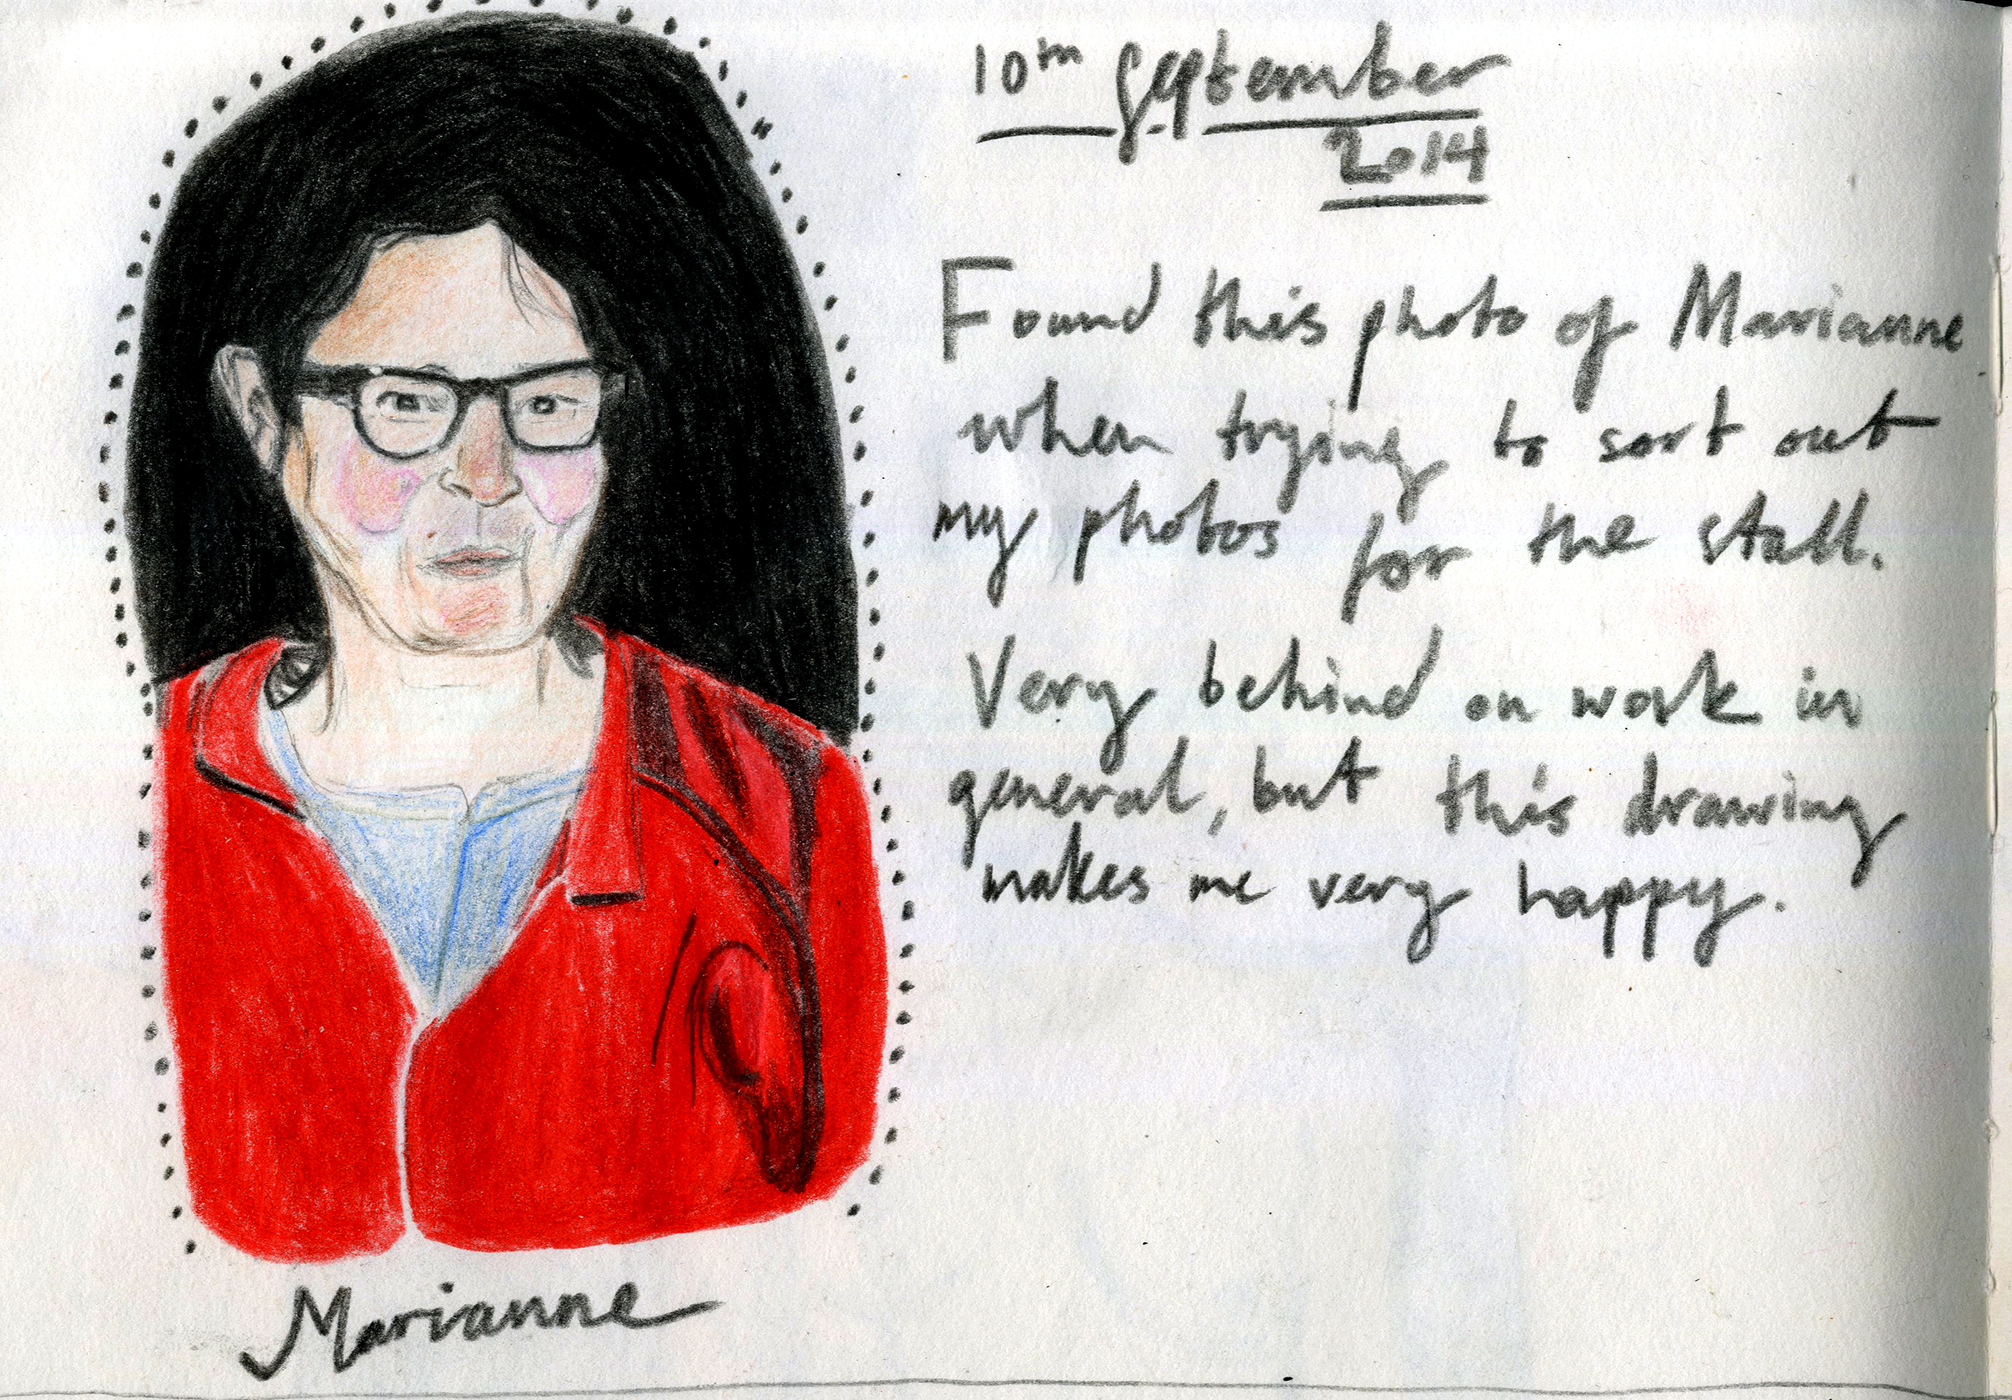 10th September
2014
Found this photo of Marianne
when trying to sort out
my photos for the stall.
Very behind on work in
general, but this drawing
makes me very happy.
Marianne